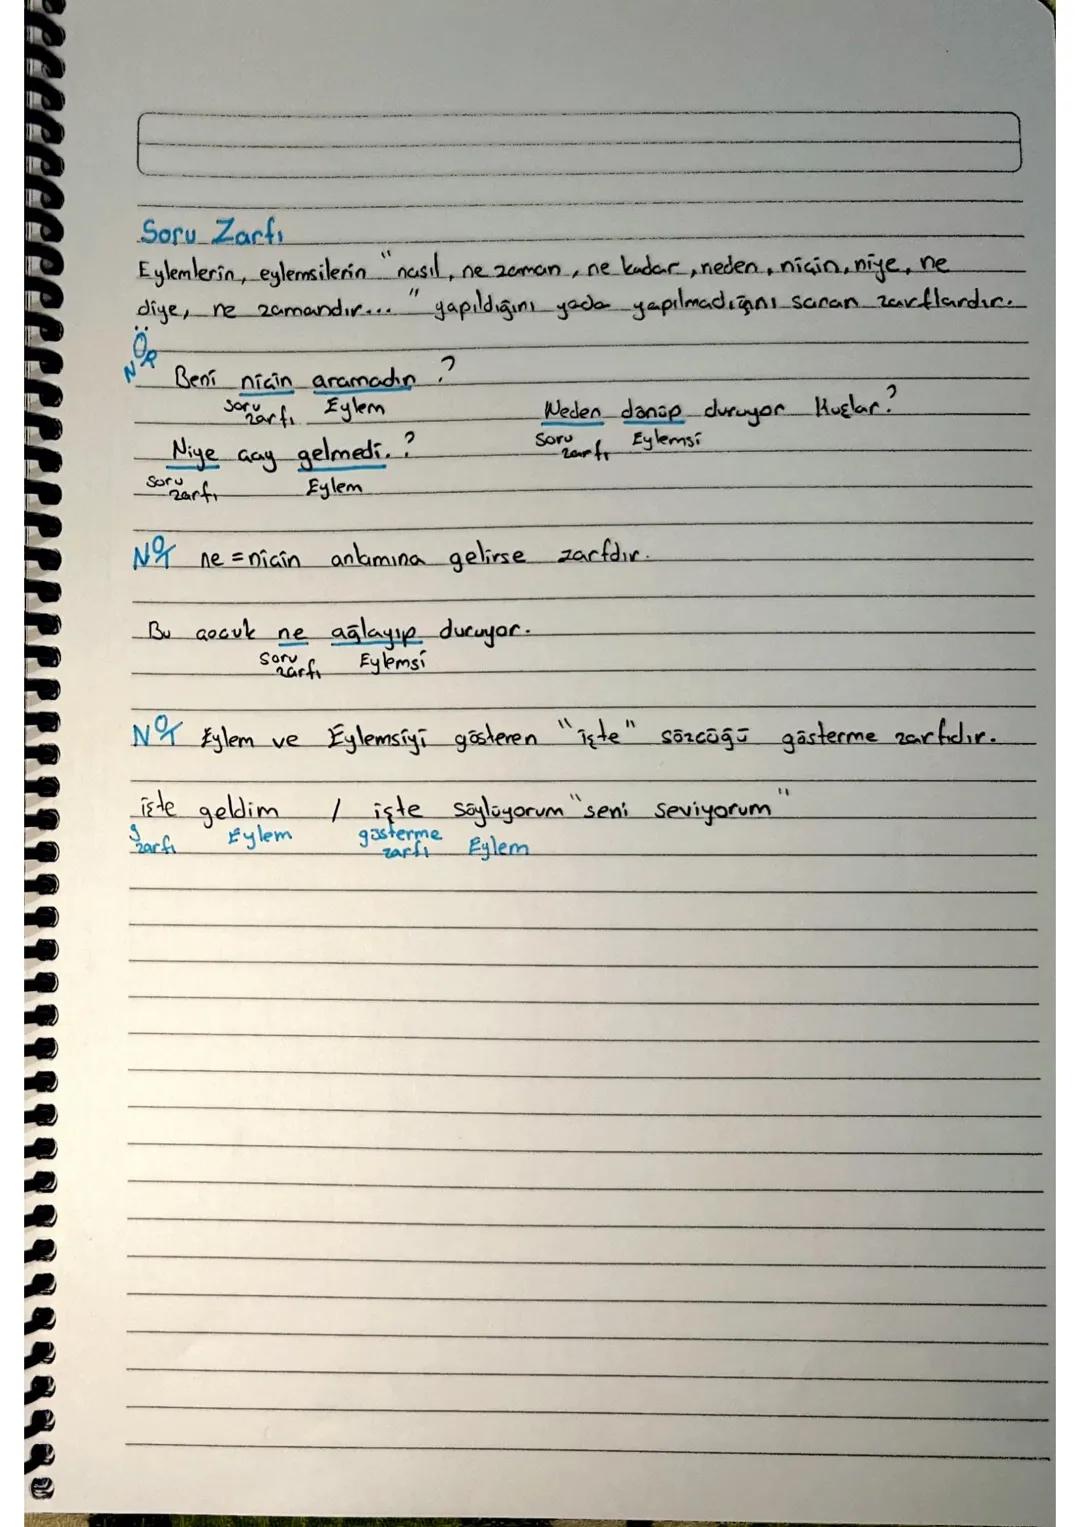 Soru Zarfı
Eylemlerin, eylemsilerin "nasıl, ne zaman, ne kadar, neden, niçin, niye, ne
diye, ne zamandır..." yapıldığını yada yapılmadığını soran zarflardır.
ÖR
N
Beni niçin aramadın ?
Soru zarfı Eylem
Neden dönüp duruyor Kuşlar?
Soru zarfı Eylemsi
Niye çay gelmedi. ?
Soru zarfı Eylem
NOT ne = niçin anlamına gelirse zarfdır.
Bu çocuk ne ağlayıp duruyor.
Soru zarfı Eylemsi
NOT Eylem ve Eylemsiyi gösteren "işte" sözcüğü gösterme zarfıdır.
işte geldim / işte söylüyorum "seni seviyorum"
g zarfı Eylem gösterme zarfı Eylem